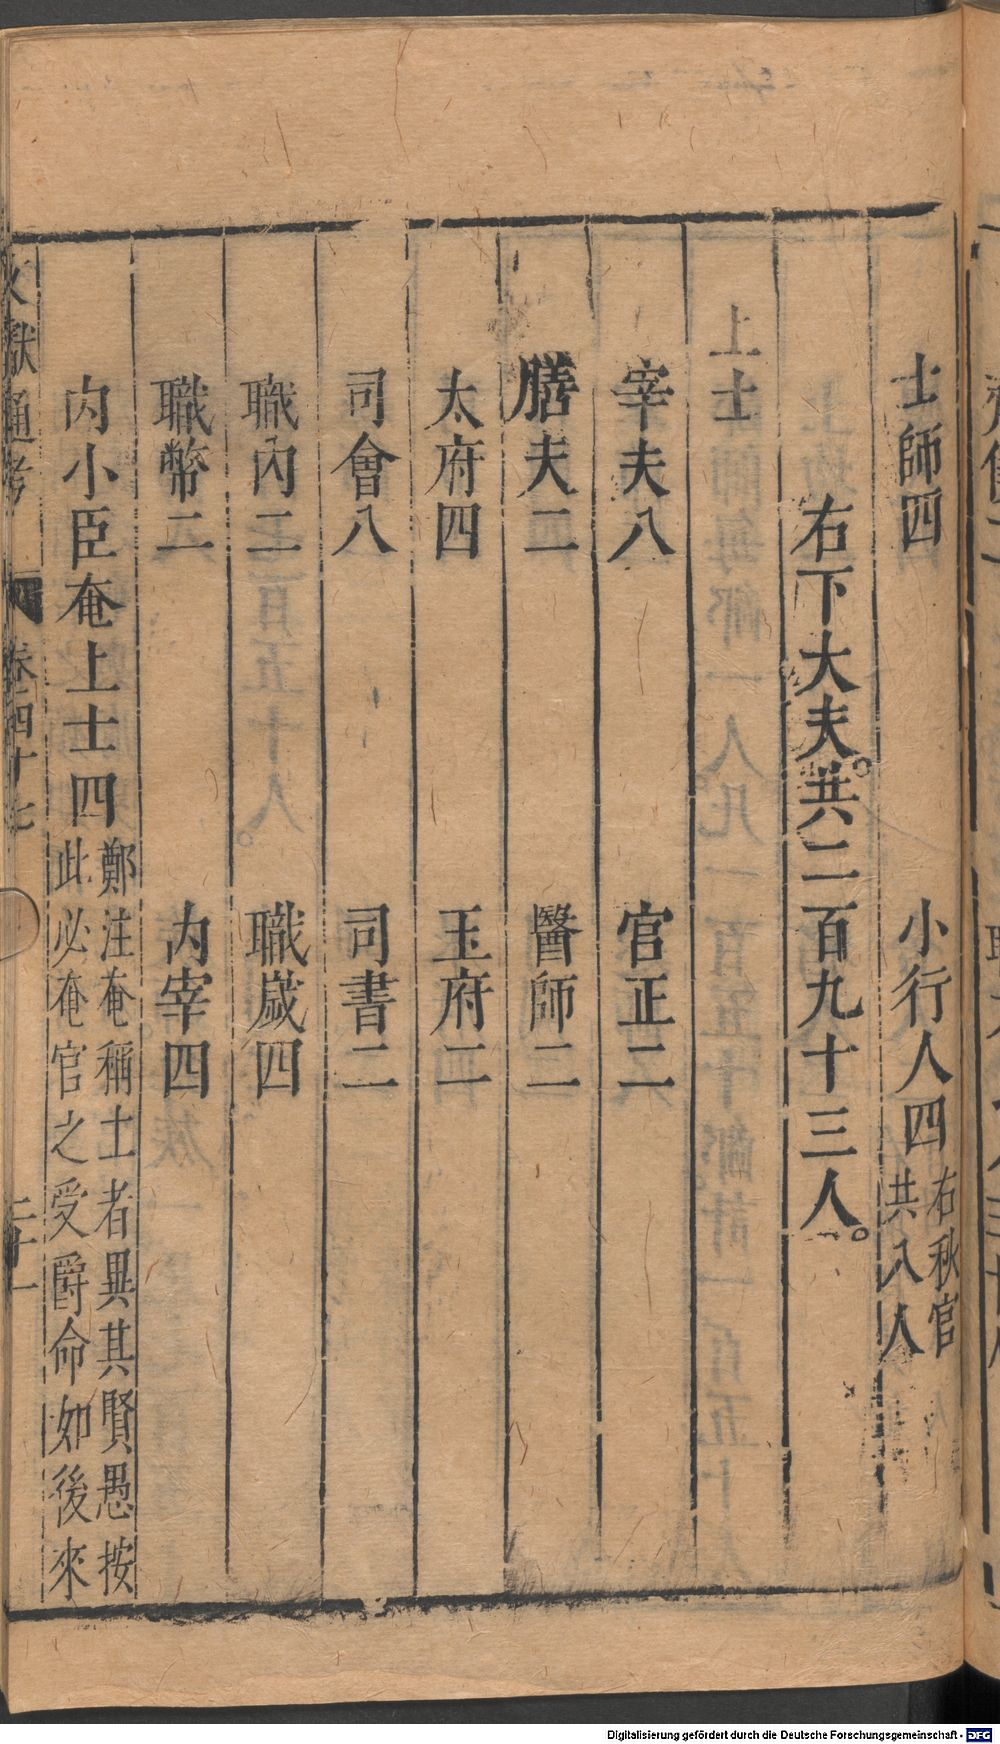 士師四　小行人四右秋官共八人
右下大夫。共二百九十三人。
上士
宰夫八　官正二
膳夫二　醫師二
太府四　玉府二
司會八　司書二
職內二　職歲四
職幣二　內宰四
內小臣奄上士四鄭注奄稱士者異其賢愚按
此必奄官之受爵命如後來
文獻通考　卷四十七　二十一
Digitalisierung gefördert durch die Deutsche Forschungsgemeinschaft - DFG